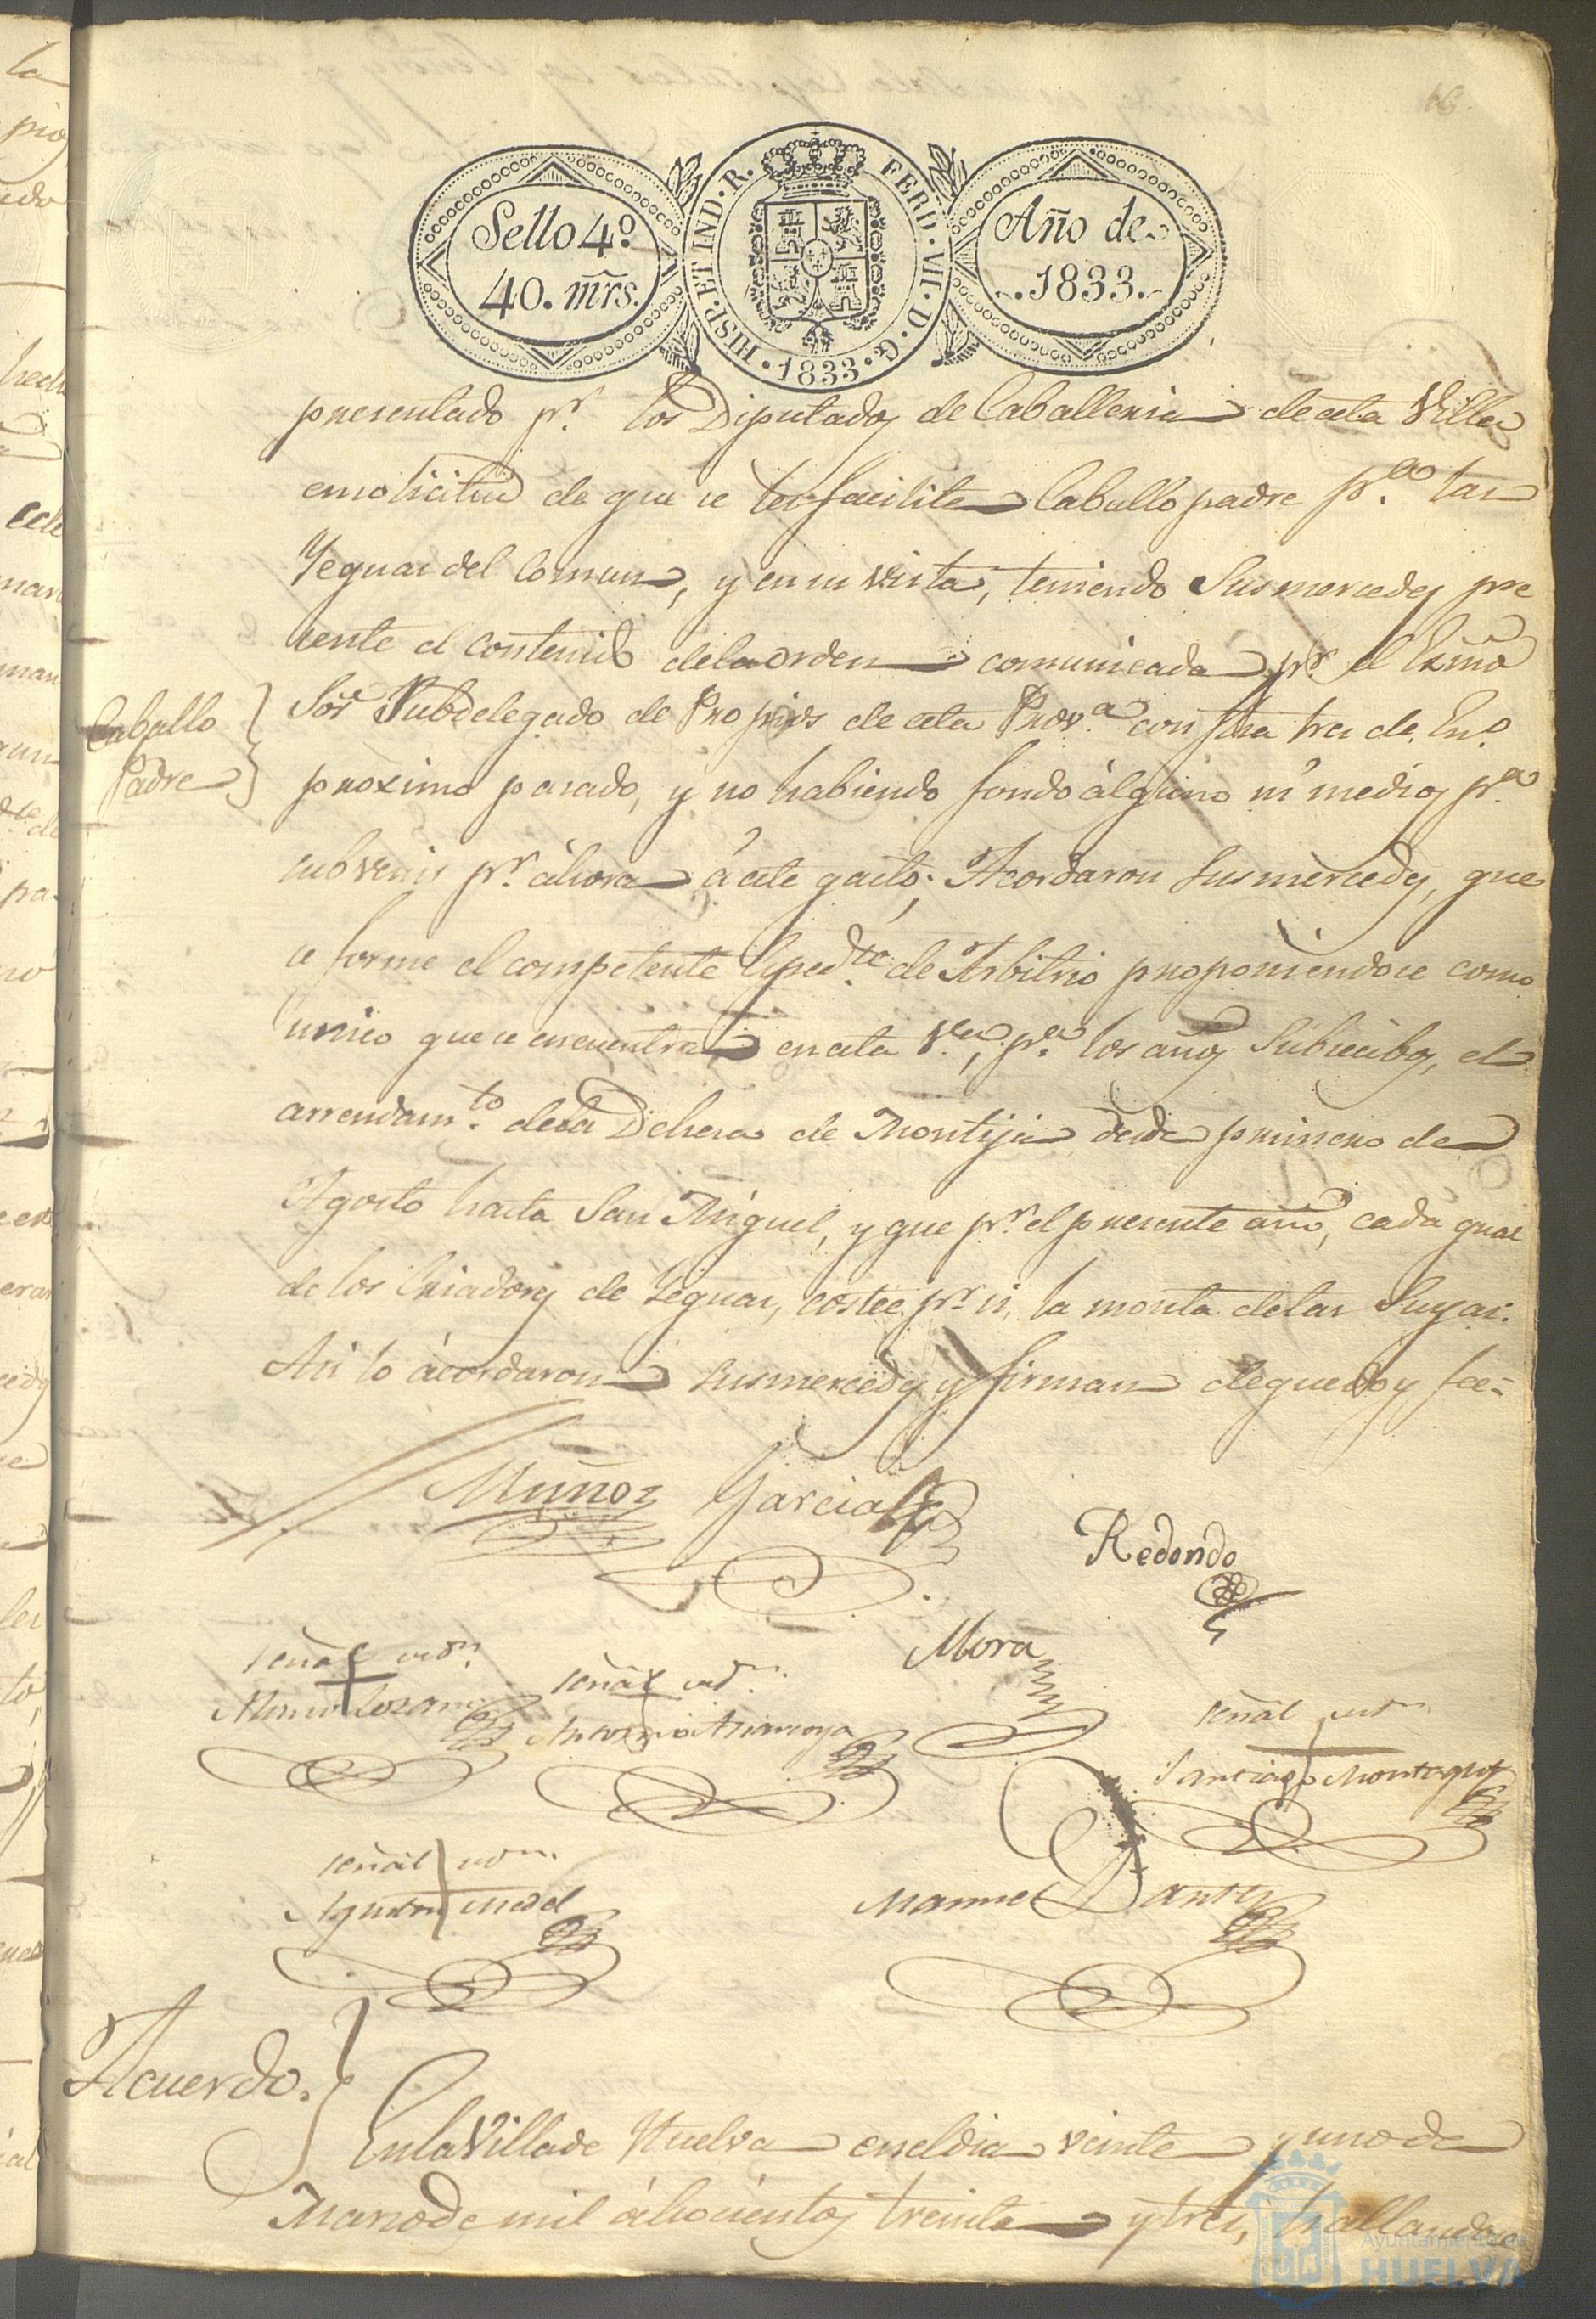 66
Sello 4º
40. mrs.
HISP. ET IND. R. FERD. VII. D. G.
1833
Año de
1833.
presentado pr. los Diputados de Caballeria de esta Villa
en solicitud de que se les facilite Caballo padre pa. las
Yeguas del Comun, y en su vista, teniendo Sus mercedes pre
sente el contenido de la orden comunicada pr. el Exmo
Sor Subdelegado de Propios de esta Prova. con fha tres de En.o
Caballo
Padre
proximo pasado, y no habiendo fondo alguno ni medios pa.
subvenir pr. áhora á este gasto; Acordaron sus mercedes, que
se forme el competente Espedte. de Arbitrio proponiendose como
unico que se encuentra en esta Va., pa. los años Subsecibos, el
arrendamto. de la Dehesa de Montija desde primero de
Agosto hasta San Miguel, y que pr. el presente año, cada qual
de los Criadores de Yeguas, costee pr. si, la monta de las Suyas.
Asi lo ácordaron sus mercedes y firman de que doy fee=
Muñoz Garcia
Redondo
Mora
señal de Dn.
Lozano
señal de Dn.
Antonio
señal de Dn.
Santiago
señal de Dn.
Agustin
Manuel
Acuerdo.
En la Villa de Huelva en el dia veinte y uno de
Marzo de mil áhocientos treinta y tres, hallandose
Ayuntamiento de
HUELVA